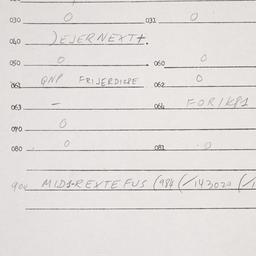 030 0 031 0
040 DEJERNEXT+.
050 0 060 0
061 QNP FRIJERDICRE 062 0
063 - 064 FORIKPI
070 0
080 0 081 0
90c MIDI-REXTEFUS (984 (/143020 (/1